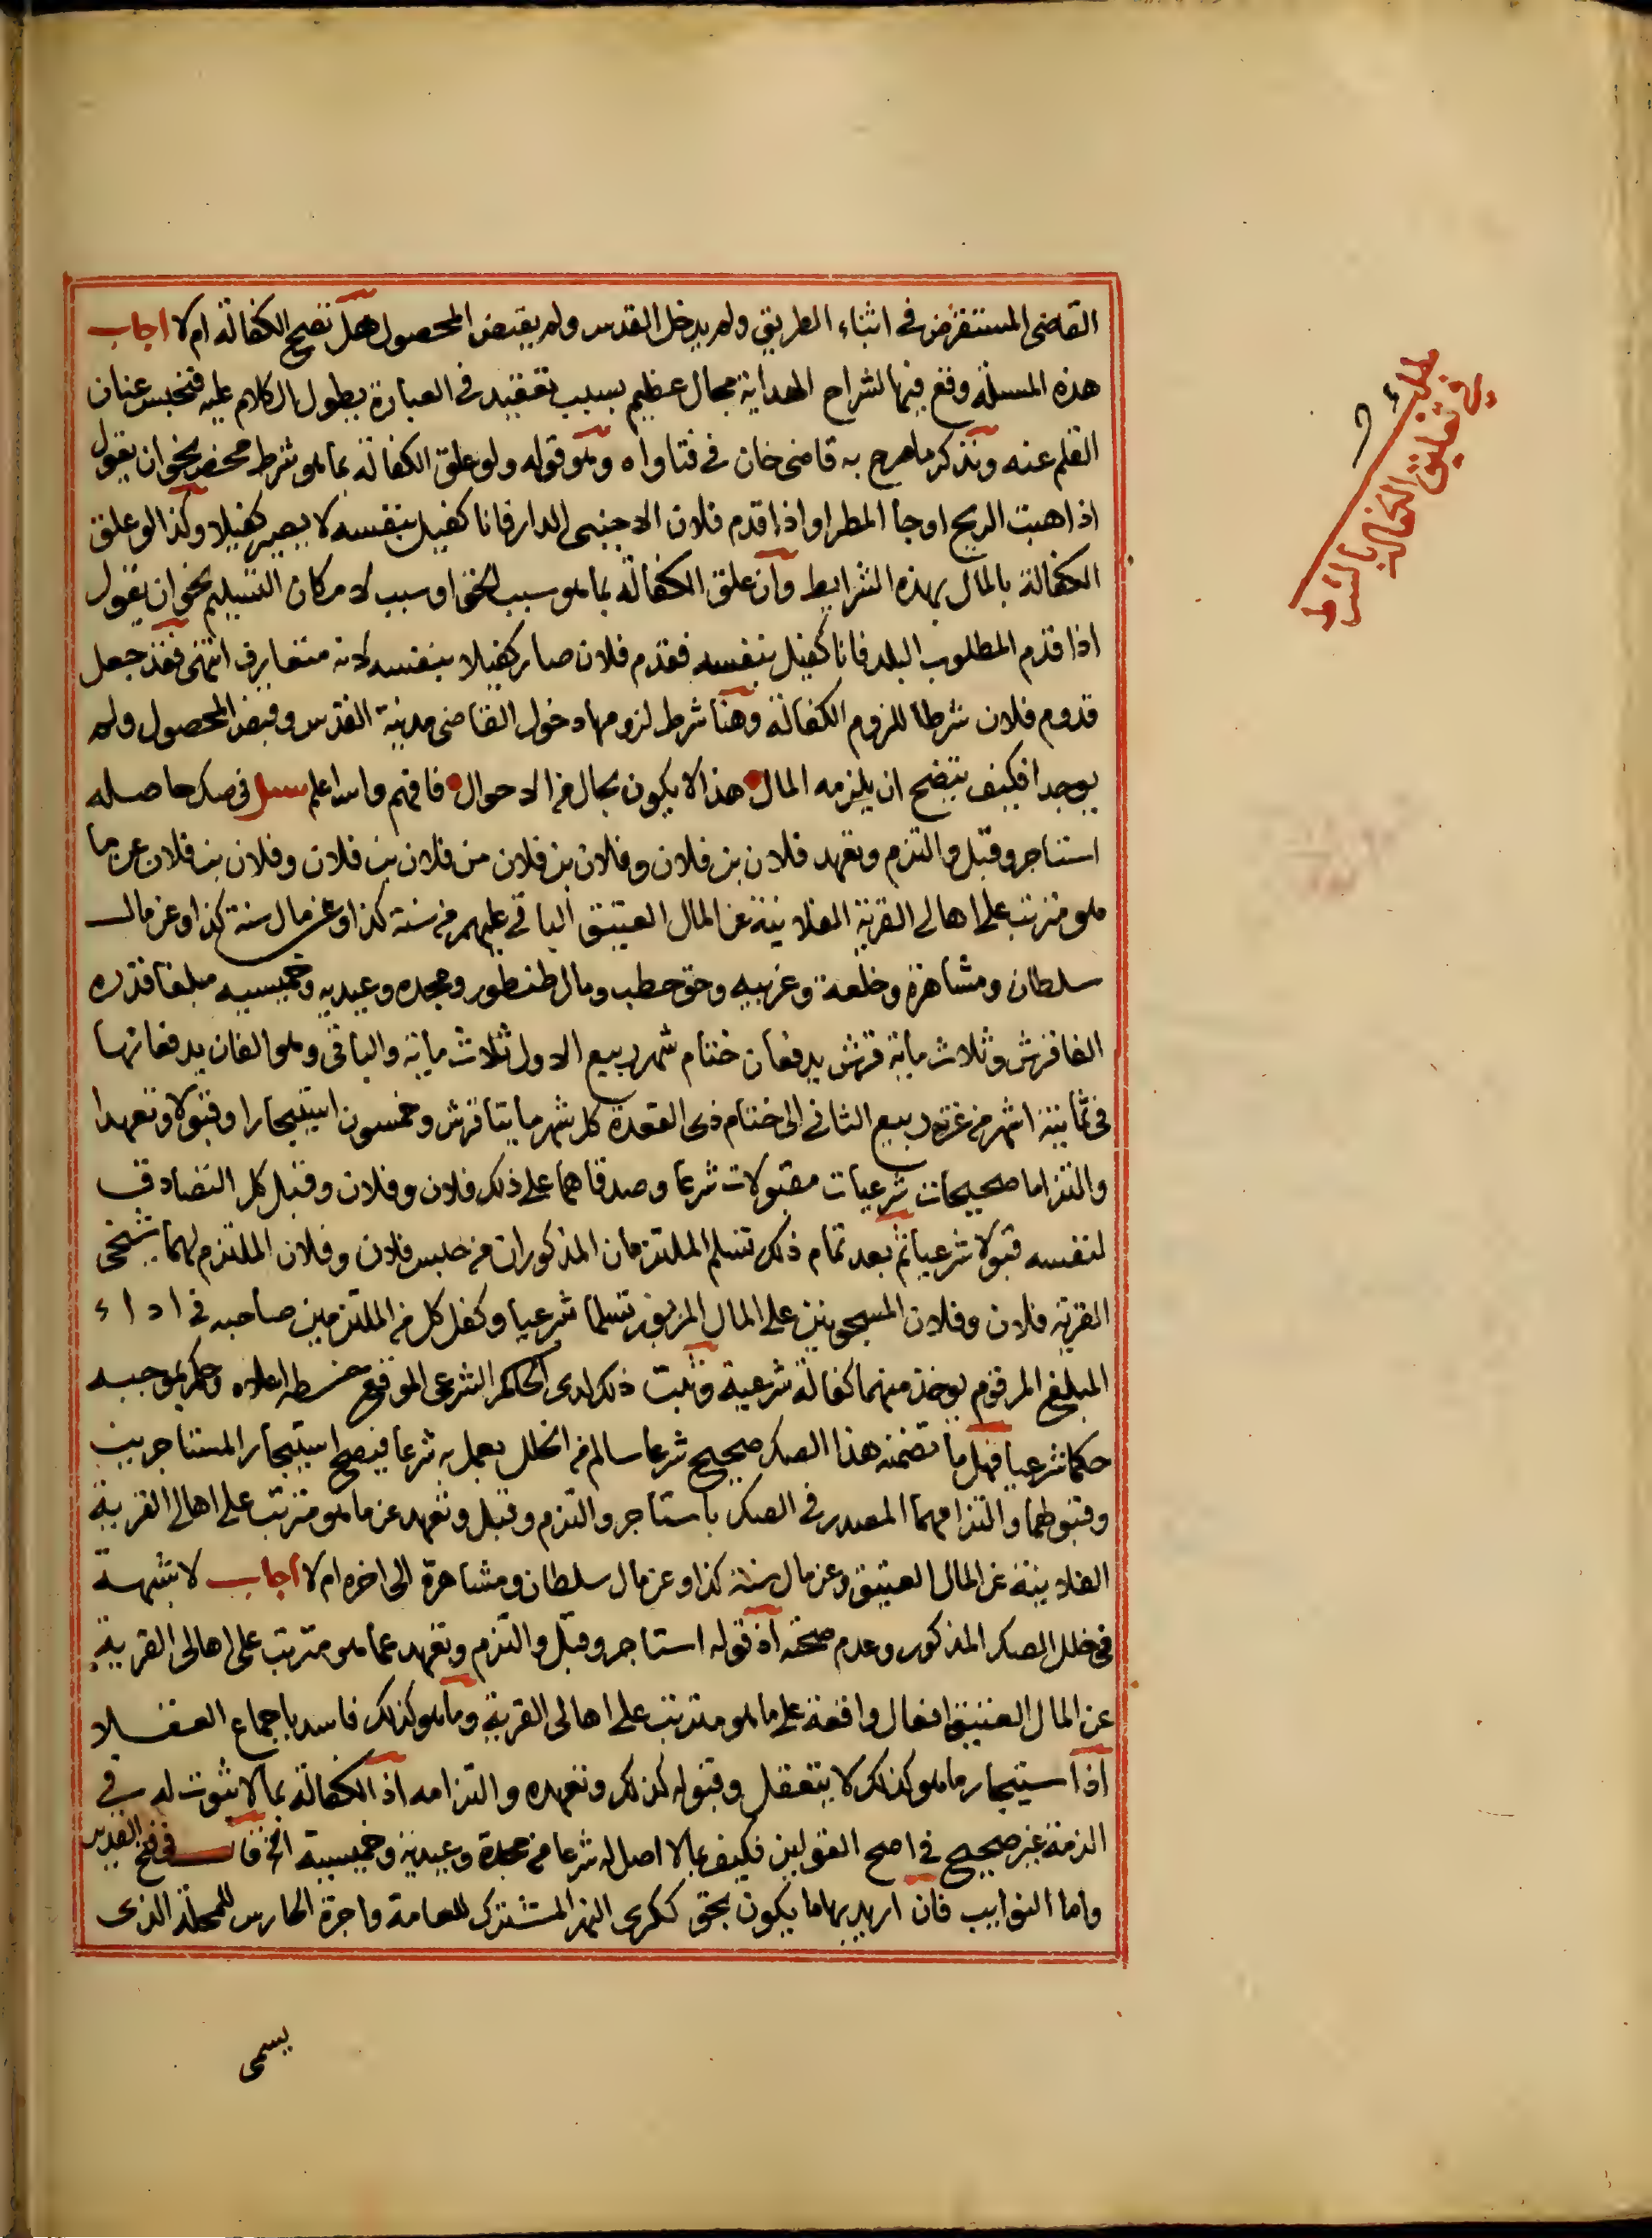 القاضى المستقرض فى اثناء الطريق ولم يدخل القدس ولم يقبض المحصول هل تصح الكفالة ام لا اجاب
هذه المسئلة وقع فيها لشراح الهداية مجال عظيم بسبب تعقيد فى العبارة يطول الكلام عليه فنحبس عنان
القلم عنه ونذكر ما صرح به قاضى خان فى فتاواه وهو قوله ولو علق الكفالة بما هو شرط محض نحو ان يقول
اذا هبت الريح او جا المطر او اذا قدم فلان الاجنبى الدار فانا كفيل بنفسه لا يصير كفيلا وكذا لو علق
الكفالة بالمال بهذه الشرايط وان علق الكفالة بما هو سبب للحق او سبب لامكان التسليم نحو ان يقول
اذا قدم المطلوب البلد فانا كفيل بنفسه فقدم فلان صار كفيلا بنفسه لانه متعارف انتهى فقد جعل
قدوم فلان شرطا للزوم الكفالة وهنا شرط لزومها دخول القاضى مدينة القدس وقبض المحصول ولم
يوجدا فكيف يتضح ان يلزمه المال هذا لا يكون بحال من الاحوال فافهم والله اعلم سىل فى صك حاصله
استاجر وقبل والتزم وتعهد فلان بن فلان وفلان بن فلان من فلان بن فلان وفلان بن فلان عن ما
هو مترتب على اهالى القرية الفلانية عن المال العتيق الباقى عليهم من سنة كذا وعن مال سنة كذا وعن مال
سلطان ومشاهرة وخلعة وعزبيه وحق حطب ومال طنطور وعجده وعيديه وخميسيه مبلغا قدره
الفا قرش وثلاث ماية قرش يدفعان ختام شهر ربيع الاول ثلاث ماية والباقى وهو الفان يدفعانها
فى ثمانية اشهر من غرة ربيع الثانى الى ختام ذى القعدة كل شهر مايتا قرش وخمسون استيجارا وقبولا وتعهدا
والتزاما صحيحات شرعيات مقبولات شرعا وصدقاهما على ذلك فلان وفلان وقبل كل التصادق
لنفسه قبولا شرعيا ثم بعد تمام ذلك تسلم الملتزمان المذكوران من حبس فلان وفلان الملتزم لهما شيخى
القرية فلان وفلان المسجونين على المال المزبور تسلما شرعيا وكفل كل من الملتزمين صاحبه فى اداء
المبلغ المرقوم يوخذ منهما كفالة شرعية وثبت ذلك لدى الحاكم الشرعى الموقع خطه اعلاه وحكم بموجبه
حكما شرعيا فهل ما تضمنه هذا الصك صحيح شرعا سالم من الخلل يعمل به شرعا فيصح استيجار المستاجرين
وقبولهما والتزامهما المصدر فى الصك باستاجر والتزم وقبل وتعهد عن ما هو مترتب على اهالى القرية
الفلانية عن المال العتيق وعن مال سنة كذا وعن مال سلطان ومشاهرة الى اخره ام لا اجاب لا شبهة
فى خلل الصك المذكور وعدم صحته اذ قوله استاجر وقبل والتزم وتعهد عما هو مترتب على اهالى القرية
عن المال العتيق افعال واقعة على ما هو مترتب على اهالى القرية وما هو كذلك فاسد باجماع العقلا
اذ استيجار ما هو كذلك لا يتعقل وقبوله كذلك وتعهده والتزامه اذ الكفالة بما لا ثبوت له فى
الذمة غير صحيح فى اصح القولين فكيف بما لا اصل له شرعا من عجدة وعيدية وخميسية الخ قال فى فتح القدير
واما النوايب فان اريد بها ما يكون بحق ككرى النهر المشترك للعامة واجرة الحارس للمحلة الذى
يسمى
مطلب
فى تعليق الكفالة بالشرط